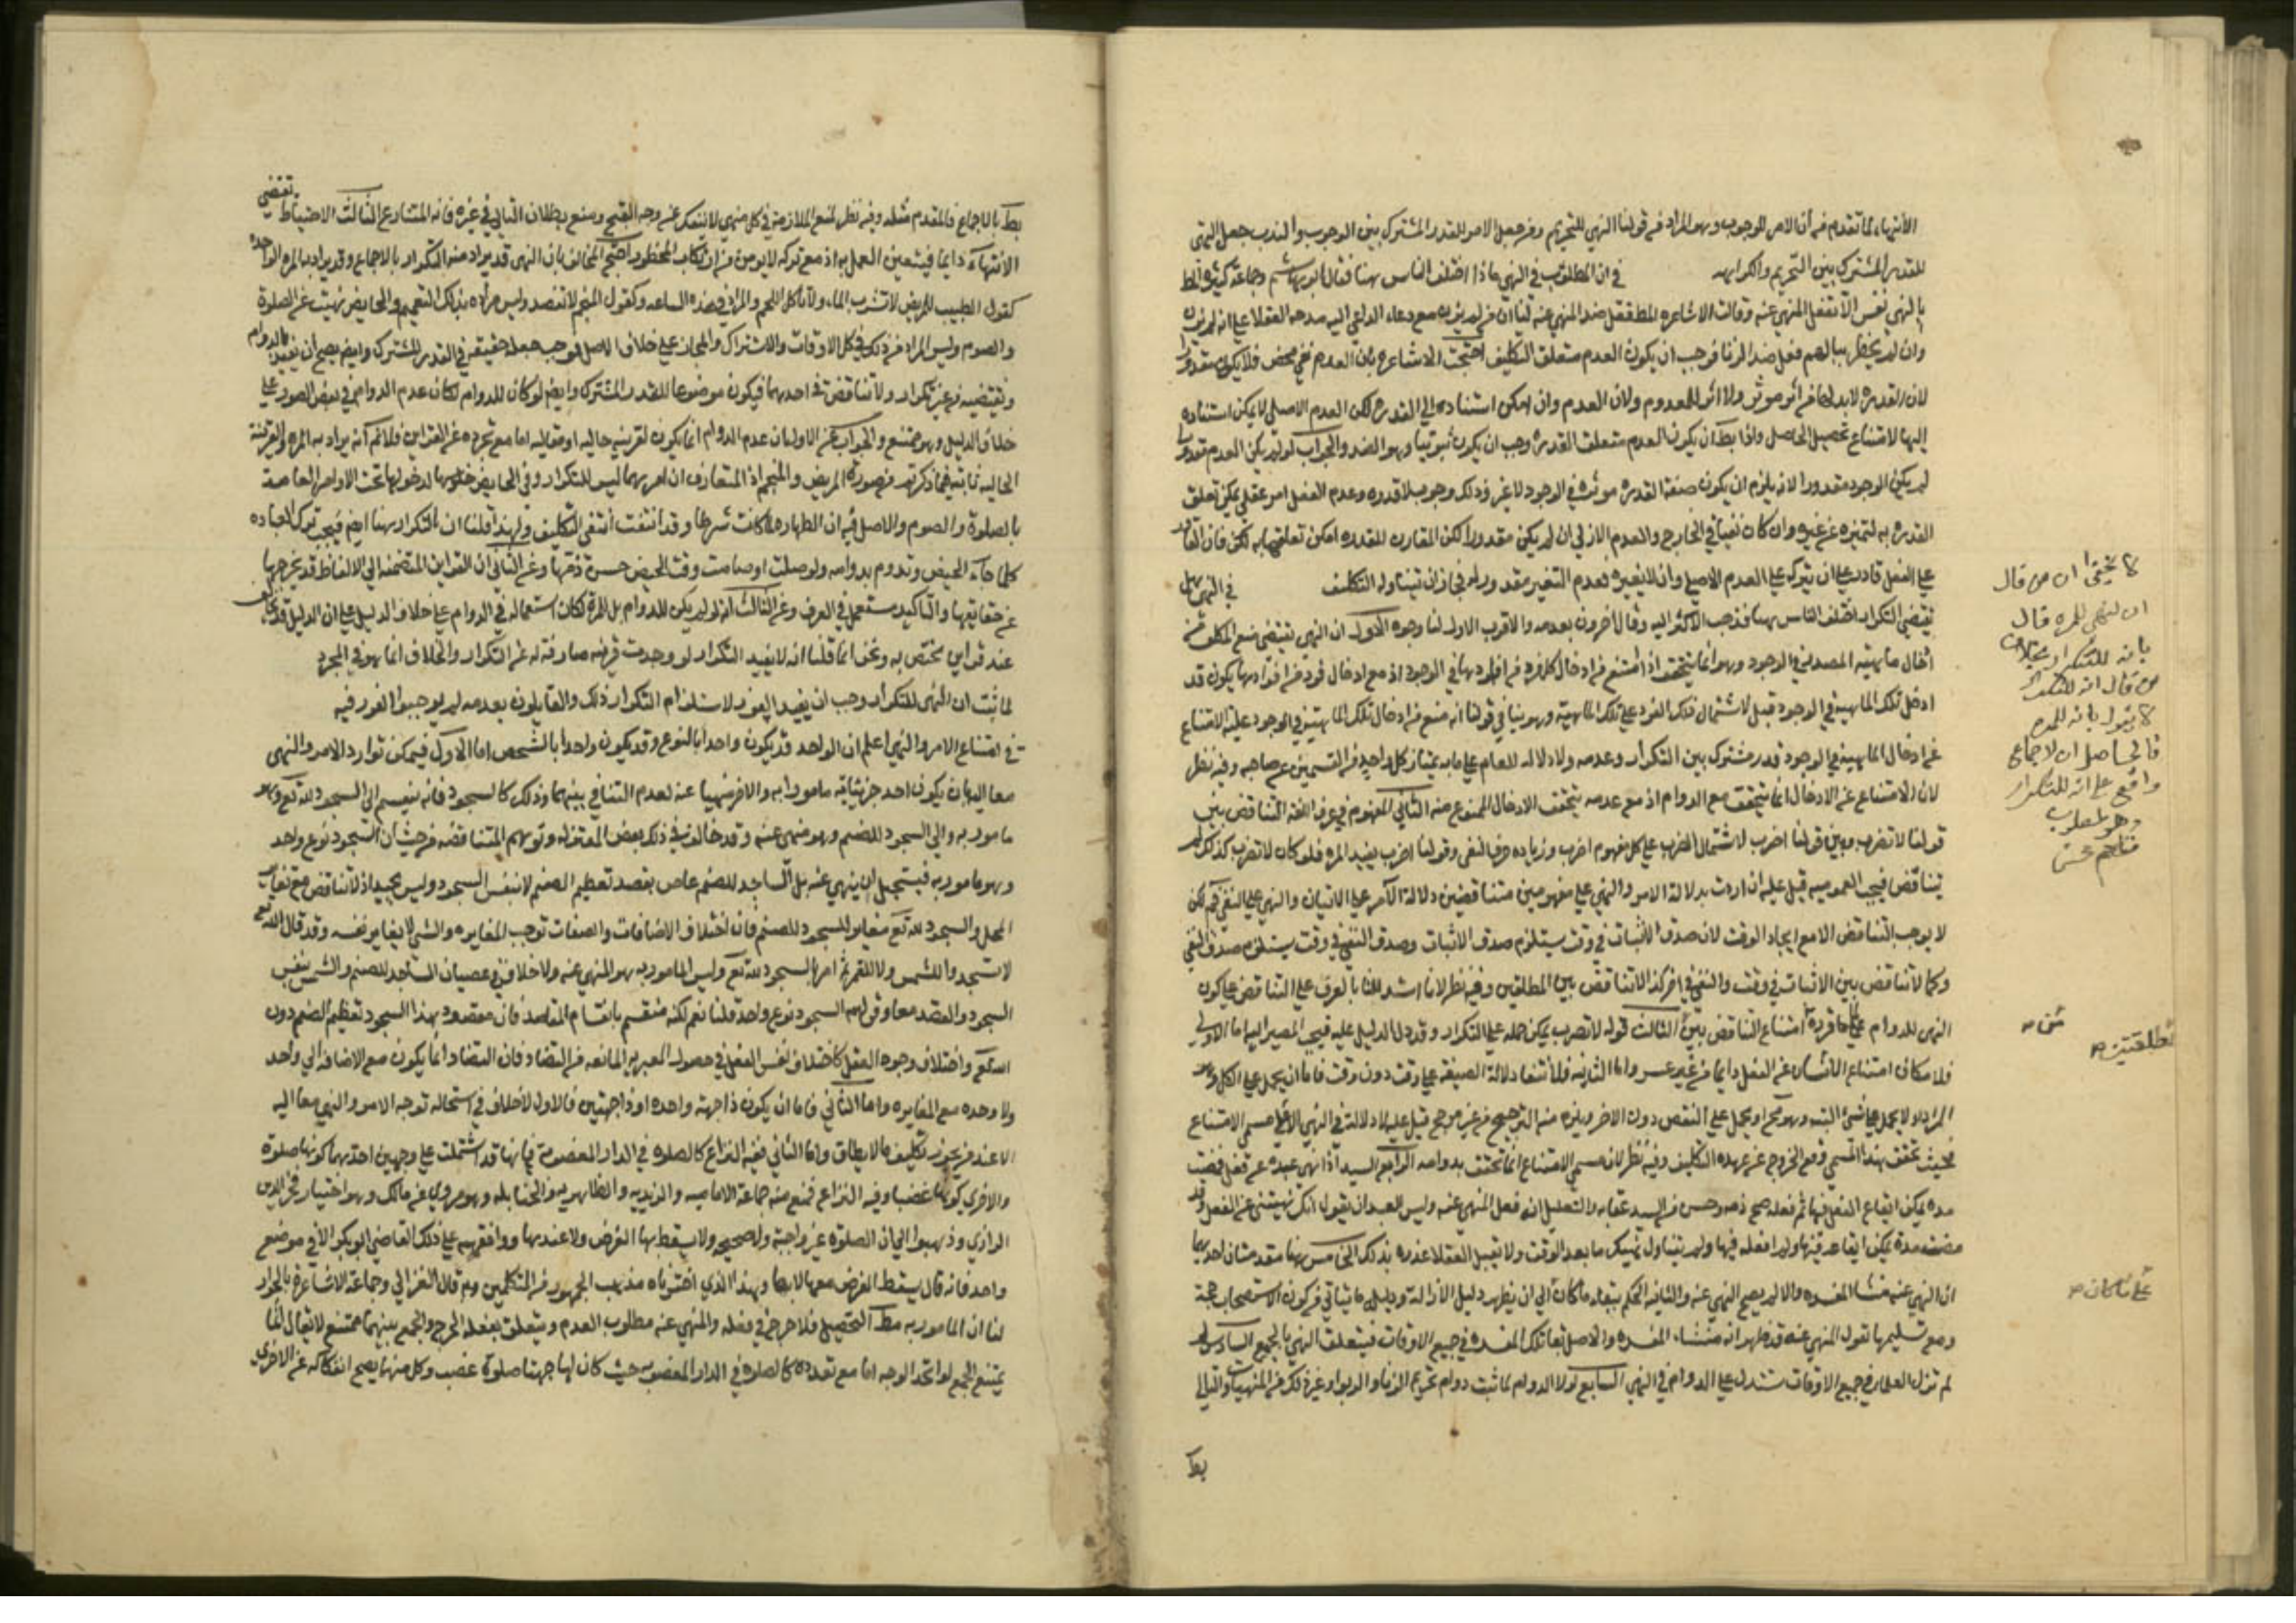 الانتهاء لما تقدم من أن الامر للوجوب وهو المراد من قولنا النهي للتحريم ومن جعل الامر للقدر المشترك بين الوجوب والندب جعل النهي
للقدر المشترك بين التحريم والكراهه في ان المطلوب في النهي ماذا اختلف الناس هنا فقال ابو هاشم وجماعة كثيرة
بالنهي نفس الا تفعل المنهي عنه وقالت الاشاعره المط فعل ضد المنهي عنه لنا ان من لم يزن مع دعاء الداعي اليه مدحه العقلا على انه لم يزن
وان لم يخطر ببالهم فعل ضد الزنا فوجب ان يكون العدم متعلق التكليف احتجت الاشاعره بان العدم نفي محض فلا يكون مقدورا
لان القدره لابد لها من أثر ولا اثر للمعدوم ولان العدم وان امكن استناده الي القدره لكن العدم الاصلي لا يمكن استناده
إليها لامتناع تحصيل الحاصل واذا بطل ان يكون العدم متعلق القدره وجب ان يكون ثبوتيا وهو الضد والجواب لو لم يكن العدم مقدورا
لم يكن الوجود مقدورا لانه يلزم ان يكون صفة القدره موثره في الوجود لا غير وذلك وجوب لا قدره وعدم الفعل امر عقلي يمكن تعلق
القدره به لتميزه عن غيره وان كان نفيا في الخارج والعدم الازلي ان لم يكن مقدورا لكن المقارن للقدره امكن تعلقها به لكن فان القادر
على الفعل قادر على ان يتركه على العدم الاصلي وان لا يغيره فعدم التغير مقدور له فجاز ان يتناوله التكليف في النهي هل
يقتضي التكرار اختلف الناس هنا فذهب الاكثر اليه وقال اخرون بعدمه والاقرب الاول لنا وجوه الاول ان النهي يقتضي منع المكلف من
ادخال ماهيته المصدر في الوجود وهو انما يتحقق اذا امتنع من ادخال كل فرد من افرادها في الوجود اذ مع ادخال فرد من افرادها يكون قد
ادخل تلك الماهية في الوجود قبل لاشتمال ذلك الفرد على تلك الماهية وهو ينافي قولنا انه منع من ادخال تلك الماهية في الوجود عليه الامتناع
عن ادخال الماهية في الوجود قدر مشترك بين التكرار وعدمه ولا دلاله للعام على ما به يمتاز كل واحد من القسمين عن صاحبه وفيه نظر
لان الامتناع عن الادخال انما يتحقق مع الدوام اذ مع عدمه يتحقق الادخال الممنوع منه الثاني المفهوم في عرف اللغة التناقض بين
قولنا لا تضرب وبين قولنا اضرب لاشتمال لا تضرب على كل مفهوم اضرب وزياده حرف النفي وقولنا اضرب يفيد المره فلو كان لا تضرب كذلك لم
يتناقض فيجب العموم قيل عليه ان اردت بدلالة الامر والنهي على مفهومين متناقضين دلالة الامر على الاتيان والنهي على النفي فهم لكن
لا يوجب التناقض الا مع اتحاد الوقت لان صدق الاثبات في وقت يستلزم صدق الاثبات وصدق النفي في وقت يستلزم صدق النفي
وكما لا تناقض بين الاثبات في وقت والنفي في اخر كذا لا تناقض بين المطلقين وفيه نظر لانا استدللنا بالعرف على التناقض على كون
النهي للدوام امتناع التناقض بين الثالث قوله لا تضرب يمكن حمله على التكرار وقد دل الدليل عليه فيجب المصير اليه اما الاولى
فلامكان امتناع الانسان عن الفعل دايما من غير عسر واما الثانيه فلانتفا دلالة الصيغه على وقت دون وقت فاما ان يحمل على الكل وهو
المراد او لا يحمل على شئ البته وهو مح او يحمل على البعض دون الاخر ويلزم منه الترجيح من غير مرجح قيل عليه لا دلالة في النهي الا على مسمى الامتناع
فحيث تحقق هذا المسمى وقع الخروج عن عهده التكليف وفيه نظر لان مسمى الامتناع انما تحقق بدوامه الرابع السيد اذا نهى عبده عن فعل فمضت
مده يمكن ايقاع الفعل فيها ثم فعله صح ذمه وحسن من السيد عقابه والتعليل انه فعل المنهي عنه وليس للعبد ان يقول انك نهيتني عن الفعل وقد
مضت مدة يمكن ايقاعه فيها ولم افعله فيها ولم يتناول نهيك ما بعد الوقت ولا يقبل العقلا عذره بذلك الخامس هنا مقدمتان احديهما
ان المنهي عنه منشا المفسده والا لم يصح النهي عنه والثانيه الحكم ببقاء ما كان الي ان يظهر دليل الازالة ودليله ما ياتي من كون الاستصحاب حجة
ومع تسليمها نقول المنهي عنه قد ظهر انه منشاء المفسده والاصل بقاء تلك المفسده في جميع الاوقات فيتعلق النهي بالجميع السادس
لم تزل العلما في جميع الاوقات تستدل على الدوام في النهي السابع لولا الدوام لما ثبت دوام تحريم الزنا والربوا وغير ذلك من المنهيات والتالي
بط
لا يخفى ان من قال
ان النهي للمره قال
بانه للتكرار بخلاف
من قال انه للتكرار
لا يقول بانه للمره
فالحاصل ان الاجماع
واقع على انه للتكرار
وهو المطلوب
المطلقتين
على ما كان
بط بالاجماع فالمقدم مثله وفيه نظر لمنع الملازمة في كل منهي لا ينفك عن وجه القبح ومنع بطلان التالي في غيره فانه المتنازع الثالث الاحتياط يقتضي
الانتهاء دايما فيتعين العمل به اذ مع تركه لا يومن من ارتكاب المحظور احتج المخالف بان النهي قد يراد منه التكرار بالاجماع وقد يراد به المره الواحده
كقول الطبيب للمريض لا تشرب الماء ولا تاكل اللحم والمراد في هذه الساعه وكقول المنجم لا تفصد وليس مراده بذلك التعميم والحايض نهيت عن الصلوة
والصوم وليس المراد من ذلك في كل الاوقات والاشتراك والمجاز على خلاف الاصل فوجب جعله حقيقه في القدر المشترك وايضا يصح ان يقيد بالدوام
ونقيضه من غير تكرار ولا تناقض في احدهما فيكون موضوعا للقدر المشترك وايضا لو كان للدوام لكان عدم الدوام في بعض الصور على
خلاف الدليل وهو ممتنع والجواب عن الاول بان عدم الدوام انما يكون لقرينه حاليه او مقاليه اما مع تجرده عن القراين فلا نم انه يراد به المره والقرينة
الحاليه ثابته فيما ذكرتم من صورة المريض والمنجم اذ المتعارف ان امرهما ليس للتكرار وفي الحايض لدخولها تحت الاوامر العامة
بالصلوة والصوم والاصل فيه ان الطهاره لما كانت شرطا وقد انتفت انتفى التكليف ولهذا قلنا ان التكرار هنا ايضا فيجب ترك العباده
كلما جاء الحيض وتدوم بدوامه ولو صلت او صامت وقت الحيض حسن ذمها وعن الثاني ان القراين المنضمه الي الالفاظ قد تخرجها
عن حقايقها والتاكيد مستعمل في العرف وعن الثالث انه لو لم يكن للدوام بل للمرة لكان استعماله في الدوام على خلاف الدليل على ان الدليل قد يخالف
عند قراين تختص به ونحن انما قلنا انه لا يفيد التكرار لو وجدت قرينه صارفه له عن التكرار والخلاف انما هو في المجرد
لما ثبت ان النهي للتكرار وجب ان يفيد الفور لاستلزام التكرار ذلك والقايلون بعدمه لم يوجبوا الفور فيه
في امتناع الامر والنهي اعلم ان الواحد قد يكون واحدا بالنوع وقد يكون واحدا بالشخص اما الاول فيمكن توارد الامر والنهي
معا اليه بان يكون احد جزئياته مامورا به والاخر منهيا عنه لعدم التنافي بينهما وذلك كالسجود فانه ينقسم الى السجود لله تع وهو
مامور به والي السجود للصنم وهو منهي عنه وقد خالف في ذلك بعض المعتزله وتوهم المناقضه من حيث ان السجود نوع واحد
وهو مامور به فيستحيل ان ينهي عنه بل الساجد للصنم عاص بقصد تعظيم الصنم لا بنفس السجود وليس بجيد اذ لا تناقض مع تغاير
المحل والسجود لله تع مغاير للسجود للصنم فان اختلاف الاضافات والصفات توجب المغايره والشي لا يغاير نفسه وقد قال الله تع
لا تسجدوا للشمس ولا للقمر ثم امر بالسجود لله تع وليس المامور به هو المنهي عنه ولا خلاف في عصيان الساجد للصنم والشمس بنفس
السجود والقصد معا وقولهم السجود نوع واحد قلنا نعم لكنه منقسم بانقسام المقاصد فان مقصود بهذا السجود تعظيم الصنم دون
الله تع واختلاف وجوه الفعل كاختلاف نفس الفعل في حصول الغيريه المانعه من التضاد فان التضاد انما يكون مع الاضافه الي واحد
ولا وحده مع المغايره واما الثاني فاما ان يكون ذا جهة واحده او ذا جهتين فالاول لا خلاف في استحاله توجه الامر والنهي معا اليه
الا عند من يجوز تكليف ما لا يطاق واما الثاني ففيه النزاع كالصلوه في الدار المغصوبة فانها قد اشتملت على وجهين احدهما كونها صلوة
والاخرى كونها غصبا وفيه النزاع فمنع منه جماعة الاماميه والزيديه والظاهريه والحنابله وهو مروي عن مالك وهو اختيار فخر الدين
الرازي وذهبوا الي ان الصلوة غير واجبة ولا صحيحه ولا يسقط بها الفرض ولا عندها ووافقهم على ذلك القاضي ابو بكر الا في موضع
واحد فانه قال يسقط الفرض عندها لا بها وهذا الذي اخترناه مذهب الجمهور من المتكلمين وقال الغزالي وجماعة الاشاعرة بالجواز
لنا ان المامور به مط التحصيل فلا حرج في فعله والمنهي عنه مطلوب العدم ويتعلق بفعله الحرج والجمع بينهما ممتنع لا يقال انما
يمتنع الجمع لو اتحد الوجه اما مع تعدده كالصلوه في الدار المغصوبه حيث كان لها جهتا صلوة وغصب وكل منهما يصح انفكاكه عن الاخرى